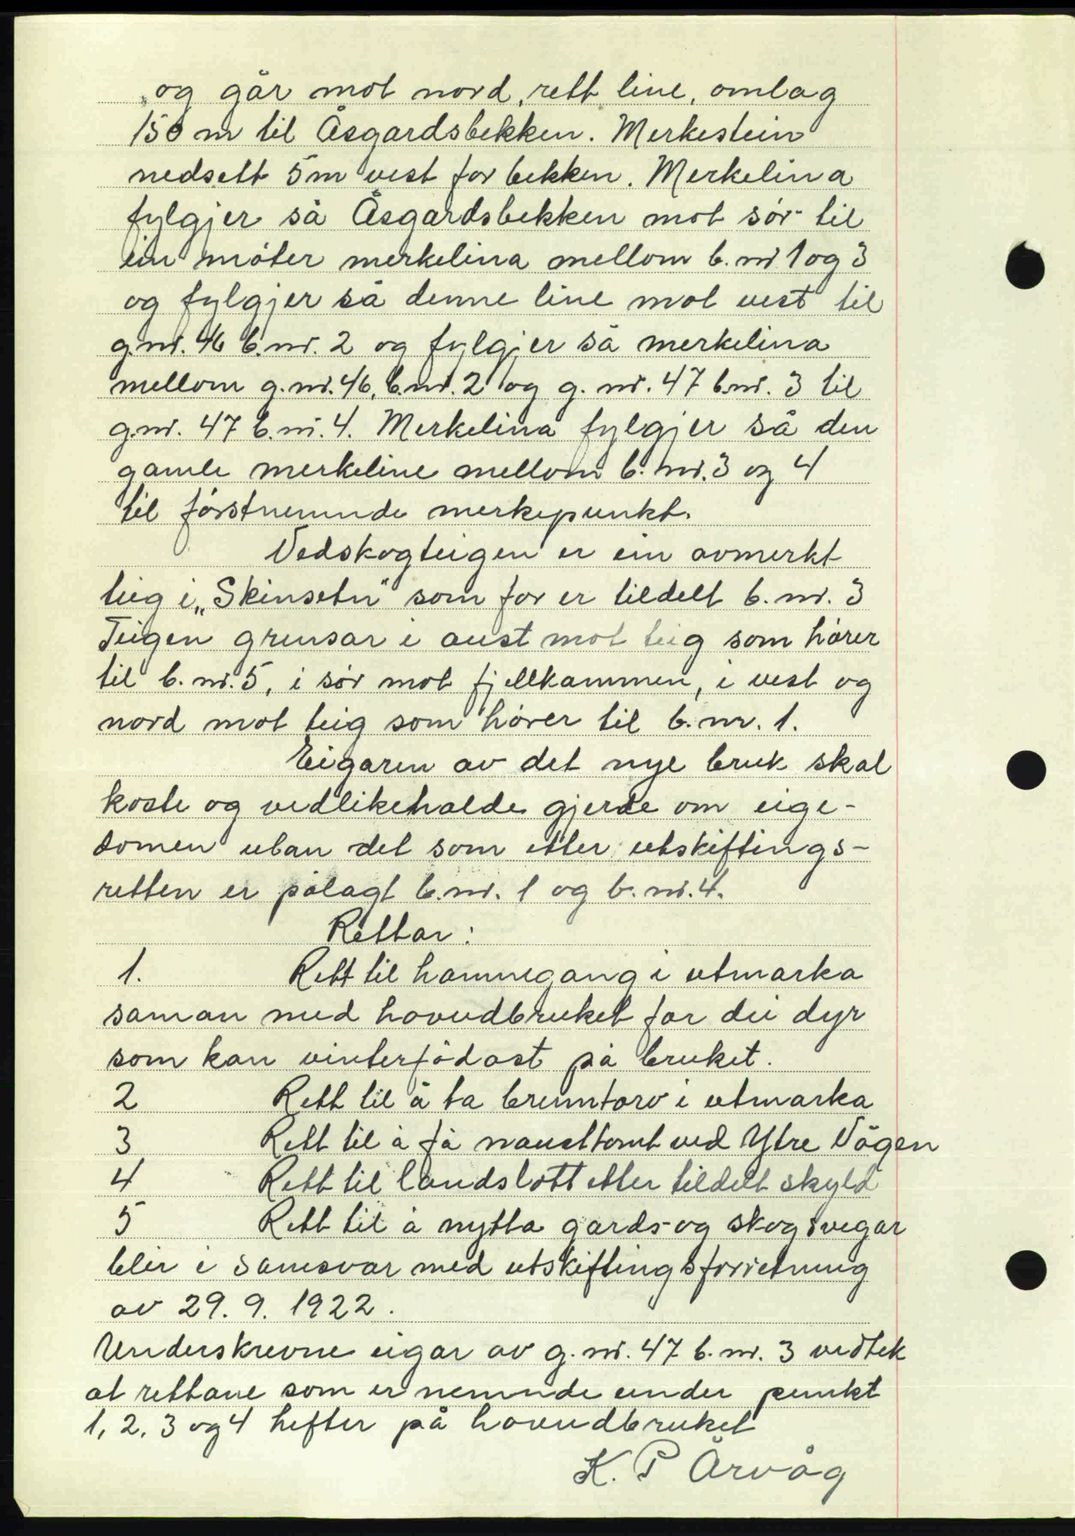 og går mot nord, rett line, omlag
150 m til Åsgardsbekken. Merkestein
nedsett 5 m vest for bekken. Merkelina
fylgjer så Åsgardsbekken mot sør til
ein møter merkelina mellom b.nr. 1 og 3
og fylgjer så denne line mot vest til
g.nr. 46 b.nr. 2 og fylgjer så merkelina
mellom g.nr. 46, b.nr. 2 og g.nr. 47 b.nr. 3 til
g.nr. 47 b.nr. 4. Merkelina fylgjer så den
gamle merkeline mellom b.nr. 3 og 4
til fyrstnemnde merkepunkt.
Vedskogteigen er ein avmerkt
teig i „Skinsetn" som for er tildelt b.nr. 3
Teigen grensar i aust mot teig som hører
til b.nr. 5, i sør mot fjellkammen, i vest og
nord mot teig som hører til b.nr. 1.
Eigaren av det nye bruk skal
koste og vedlikehalde gjerde om eige-
domen utan det som etter utskiftings-
retten er pålagt b.nr. 1 og b.nr. 4.
Rettar:
1. Rett til hamnegang i utmarka
saman med hovudbruket for dei dyr
som kan vinterfødast på bruket.
2 Rett til å ta brenntorv i utmarka
3 Rett til å få nausttomt ved Ytre Vågen
4 Rett til landslott etter tildelt skyld
5 Rett til å nytta gards- og skogsvegar
blir i samsvar med utskiftingsforretning
av 29. 9. 1922.
Underskrevne eigar av g.nr. 47 b.nr. 3 vedtek
at rettane som er nemnde under punkt
1, 2, 3 og 4 hefter på hovudbruket
K. P Årvåg